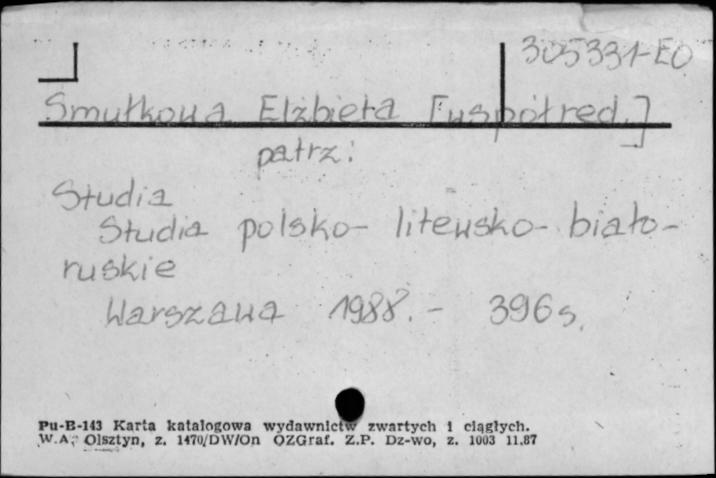 305331-EO
Smułkowa Elżbieta [współred.]
patrz:
Studia
Studia polsko- litewsko- biało-
ruskie
Warszawa 1988. - 396 s.
Pu-B-143 Karta katalogowa wydawnictw zwartych i ciągłych.
W.A. Olsztyn, z. 1470/DW/On OZGraf. Z.P. Dz-wo, z. 1003 11.87